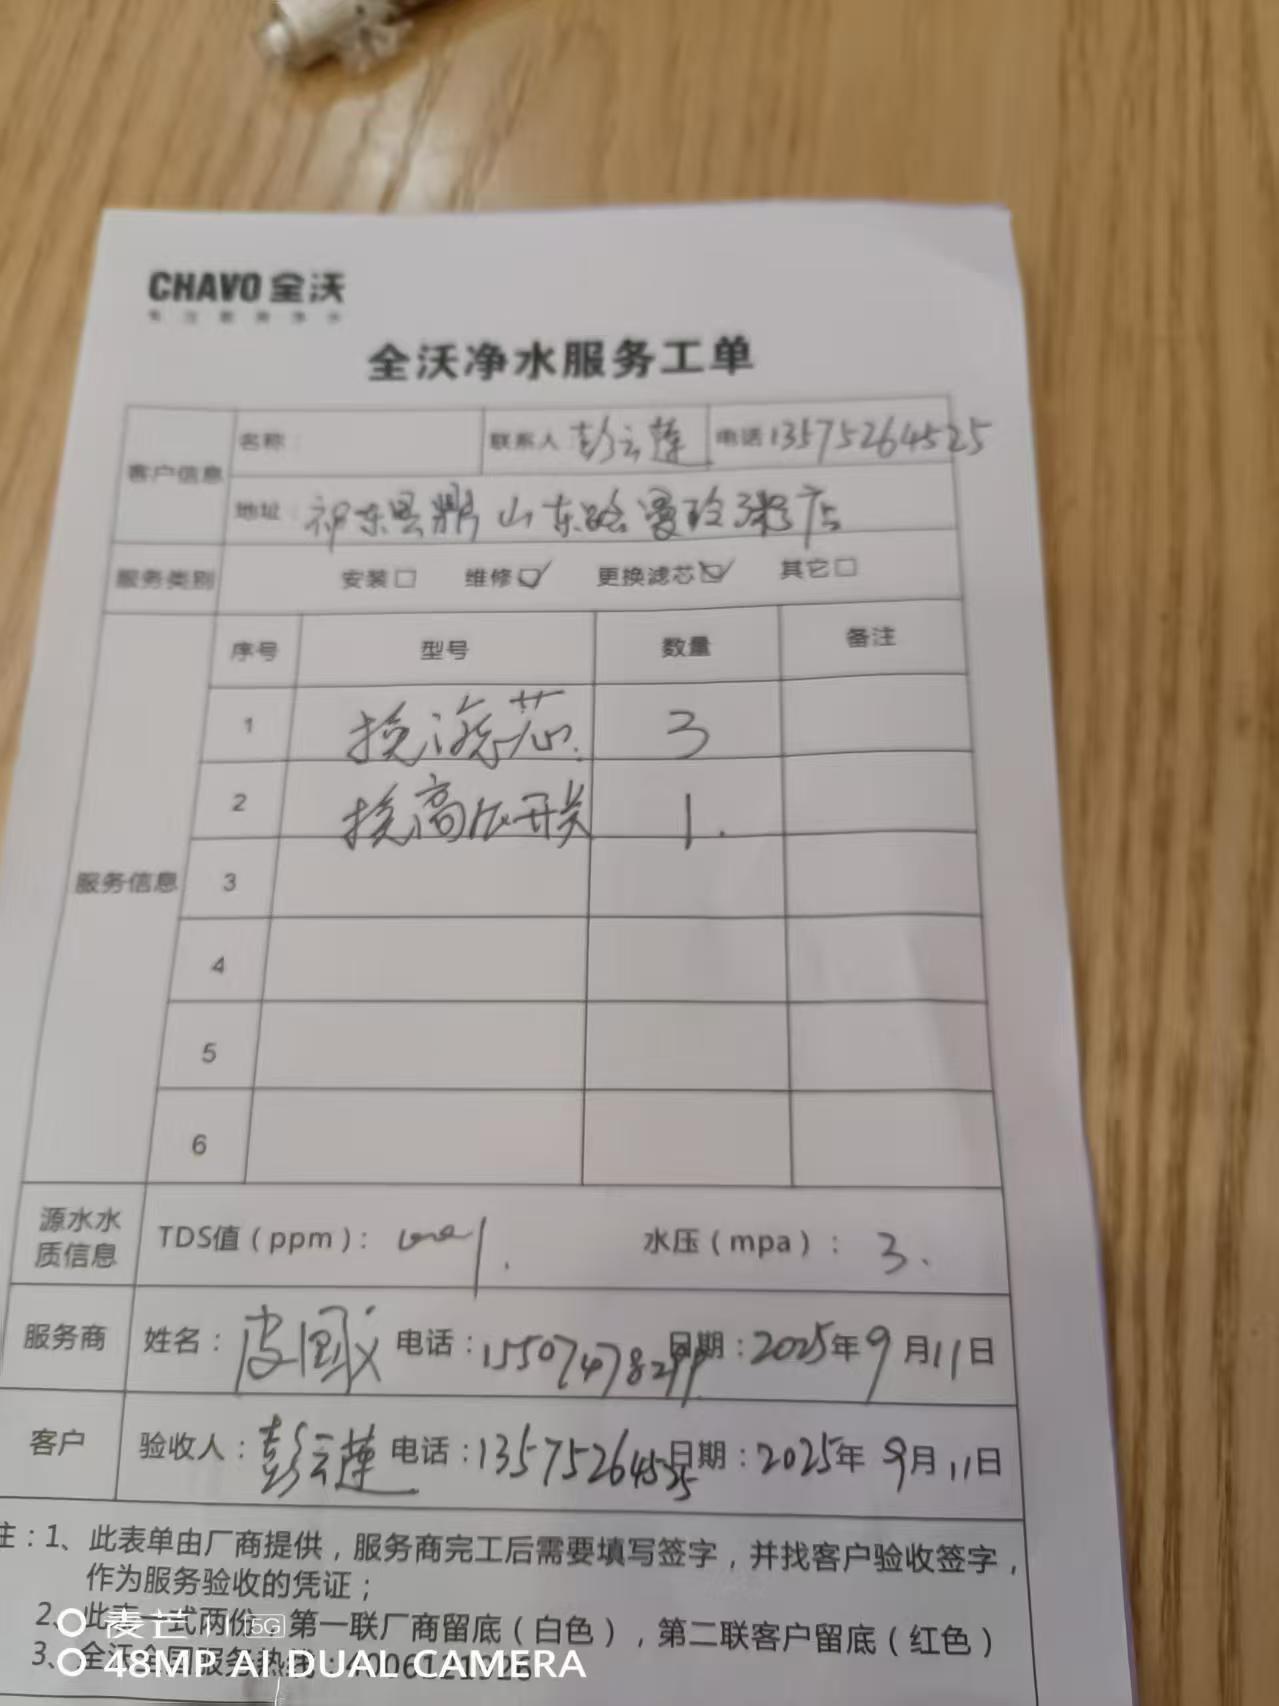 CHAVO 全沃
专注商用净水
全沃净水服务工单
客户信息 名称： 联系人 彭云莲 电话 13575264525
地址： 祁东县鼎山东路曼玲粥店
服务类别 安装□ 维修☑ 更换滤芯☑ 其它□
服务信息 序号 型号 数量 备注
1 换滤芯. 3
2 换高压开关 1.
3
4
5
6
源水水质信息 TDS值（ppm）： 水压（mpa）： 3.
服务商 姓名： 皮国义 电话：15507478299 日期：2025年9月11日
客户 验收人：彭云莲 电话：13575264525 日期：2025年9月11日
注：1、此表单由厂商提供，服务商完工后需要填写签字，并找客户验收签字，
作为服务验收的凭证；
2、此表一式两份，第一联厂商留底（白色），第二联客户留底（红色）
3、全沃全国服务热线：
麦芒 11 5G
48MP AI DUAL CAMERA